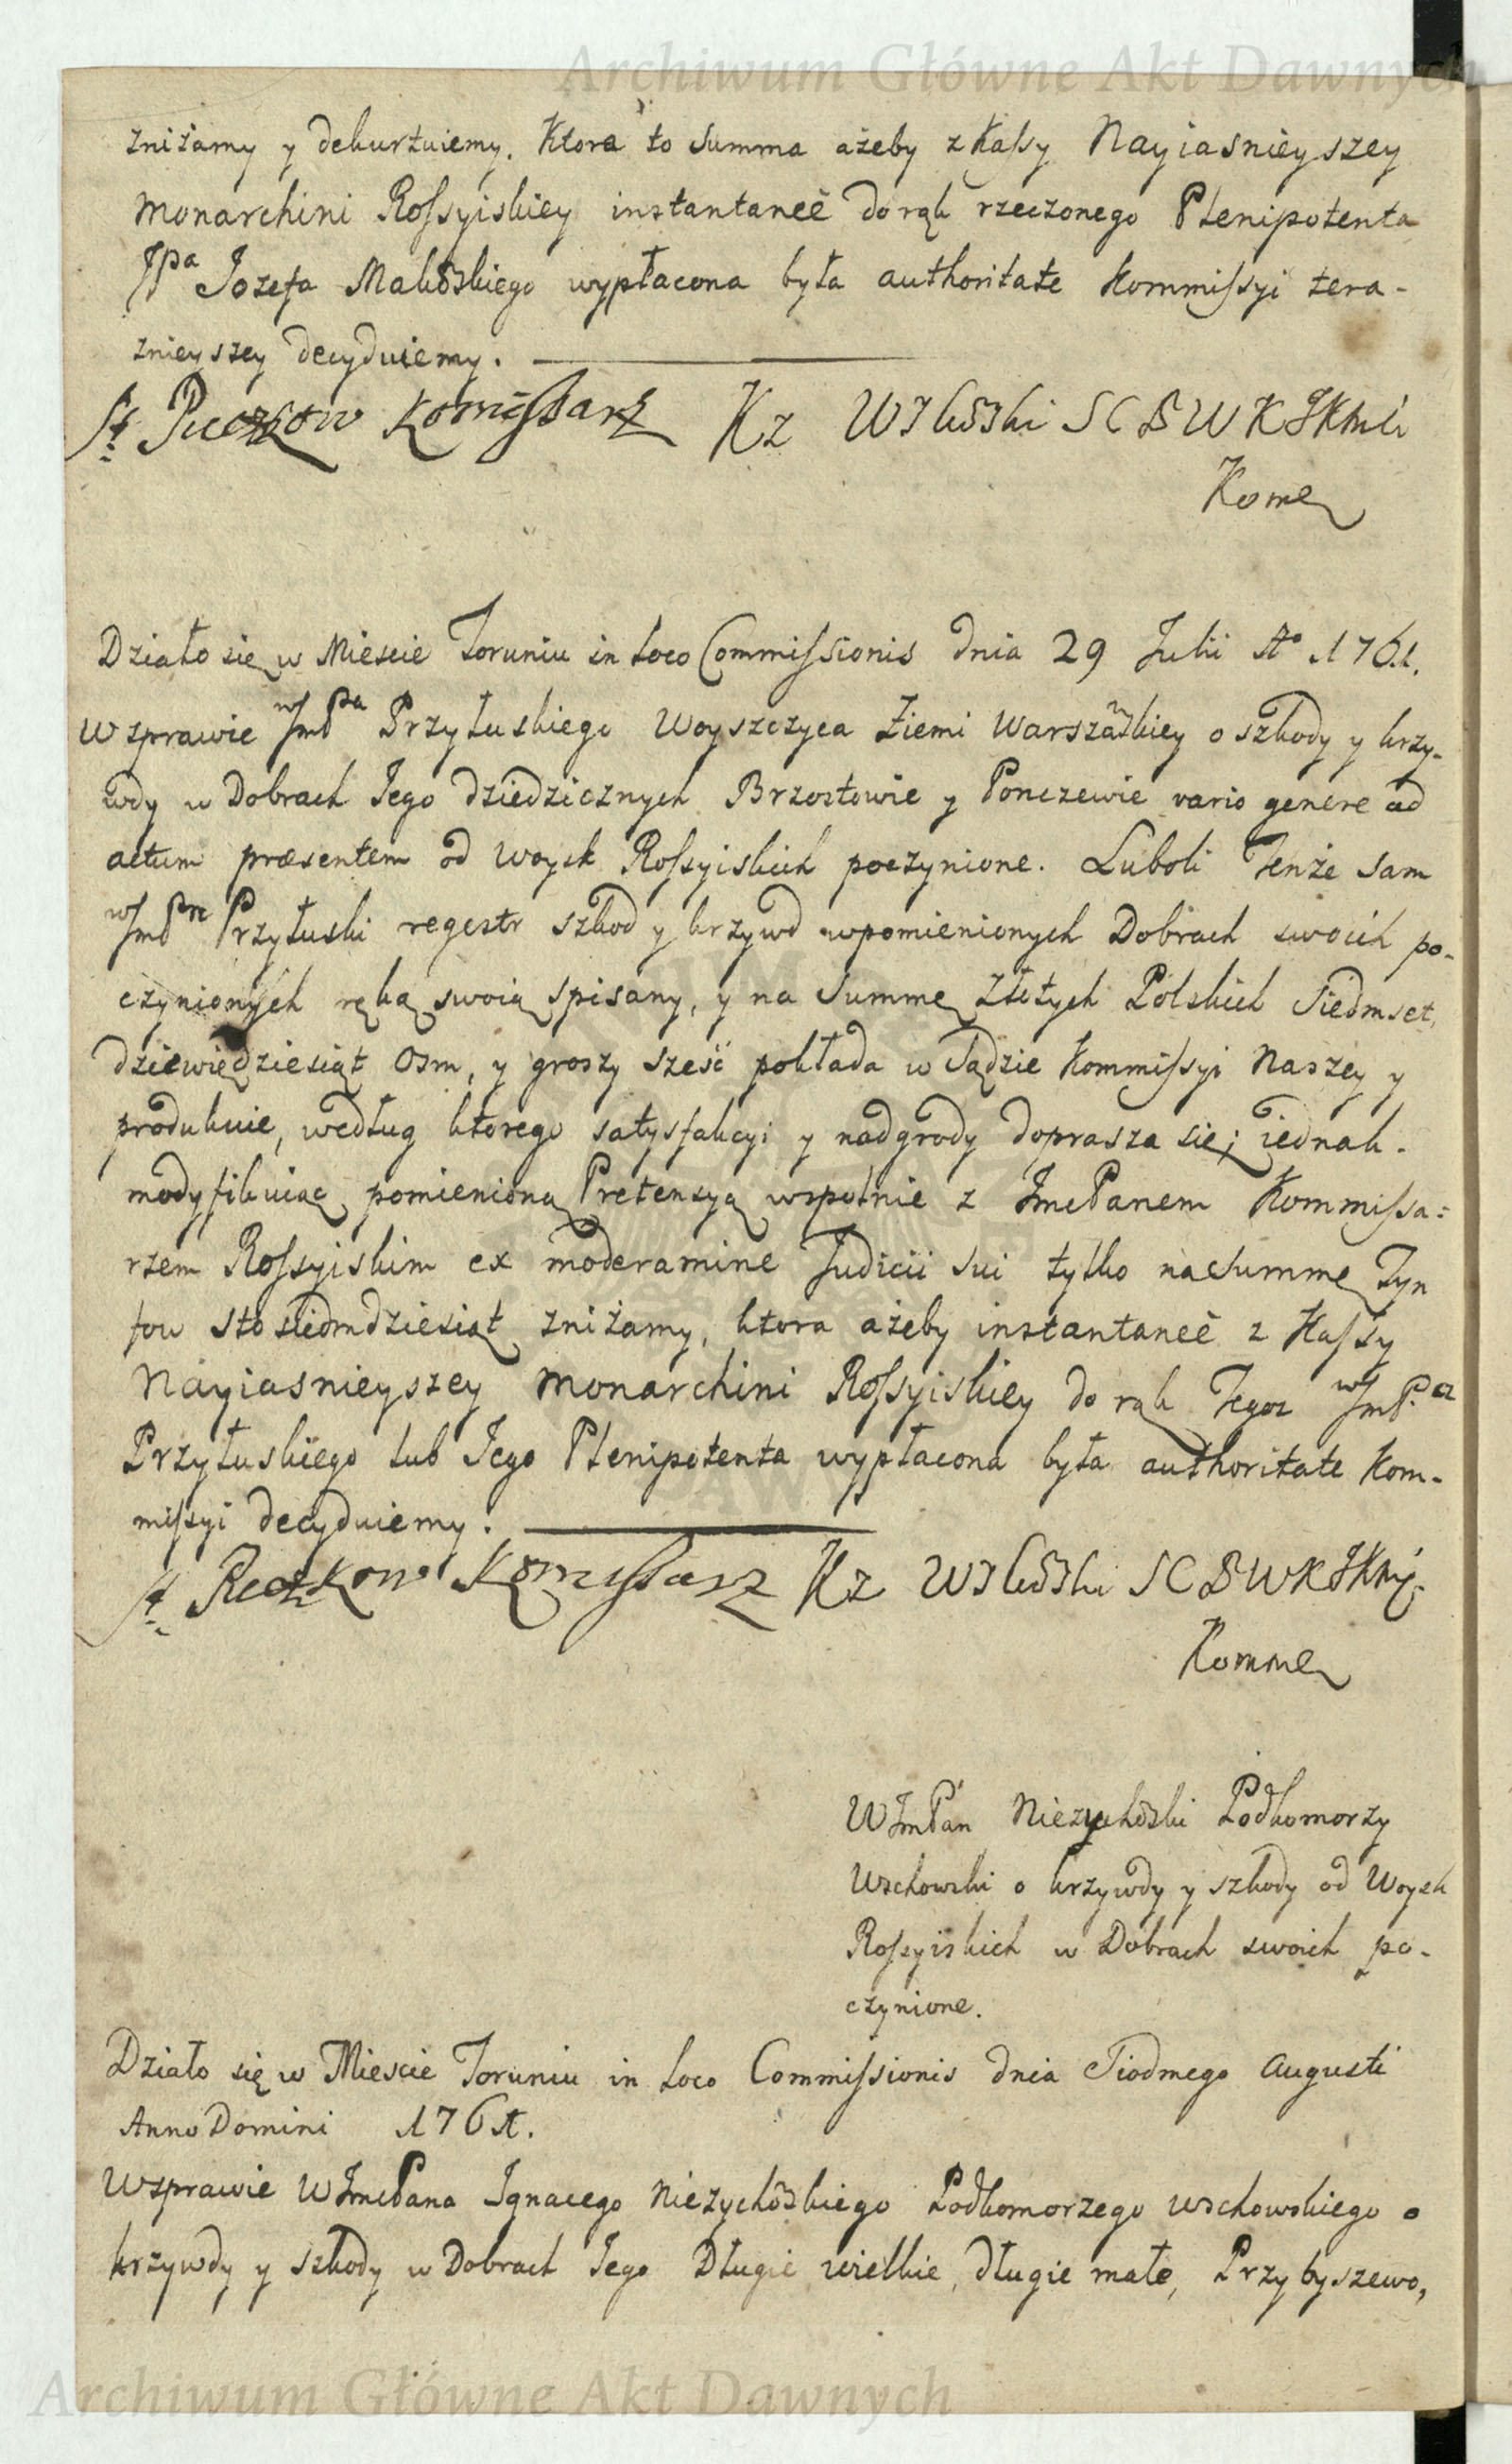 Archiwum Główne Akt Dawnych
zniżamy y dekurtuiemy. Ktora to Summa ażeby z Kaſsy Nayiasnieyszey
Monarchini Roſsyiskiey instantaneè do rąk rzeczonego Plenipotenta
JPa Jozefa Makowskiego wypłacona była authoritate Kommiſsyi tera-
znieyszey decyduiemy.
Komiſsarz Kz SCBWK
Kome
Działo się w Miescie Toruniu in Loco Commiſsionis dnia 29 Julii Ao 1761.
W sprawie WJmPa Przyłuskiego Woyszczyca Ziemi Warszawskiey o szkody y krzy-
wdy w Dobrach Jego dziedzicznych Brzostowie y Ponczewie vario genere ad
actum præsentem od Woysk Roſsyiskich poczynione. Luboli Tenże Sam
WJmPn Przyłuski regestr szkod y krzywd wpomienionych Dobrach swoich po-
czynionych ręką swoią spisany, y na Summę Złotych Polskich Siedmset
dziewiędziesiąt Osm, y groszy sześć pokłada w Sądzie Kommiſsyi Naszey y
produkuie, według ktorego satysfakcyi y nadgrody doprasza się; iednak.
modyfikuiąc pomienioną Pretensyą wspolnie z JmcPanem Kommiſsa-
rzem Roſsyiskim ex moderamine Judicii sui tylko na Summę Tyn
fow sto siedmdziesiąt zniżamy, ktora ażeby instantaneè z Kaſsy
Nayiasnieyszey Monarchini Roſsyiskiey do rąk Tegoz WJmP.a
Przyłuskiego lub Jego Plenipotenta wypłacona była authoritate Kom-
miſsyi decyduiemy.
Komiſsarz Kz SCBWK
Komme
WJmPan Nieżychowski Podkomorzy
Wschowski o krzywdy y szkody od Woysk
Roſsyiskich w Dobrach swoich po-
czynione.
Działo się w Miescie Toruniu in Loco Commiſsionis dnia Siodmego Augusti
Anno Domini 1761.
W sprawie WJmcPana Ignacego Nieżychowskiego Podkomorzego Wschowskiego o
krzywdy y szkody w Dobrach Jego Długie wielkie, długie małe, Przybyszewo,
Archiwum Główne Akt Dawnych